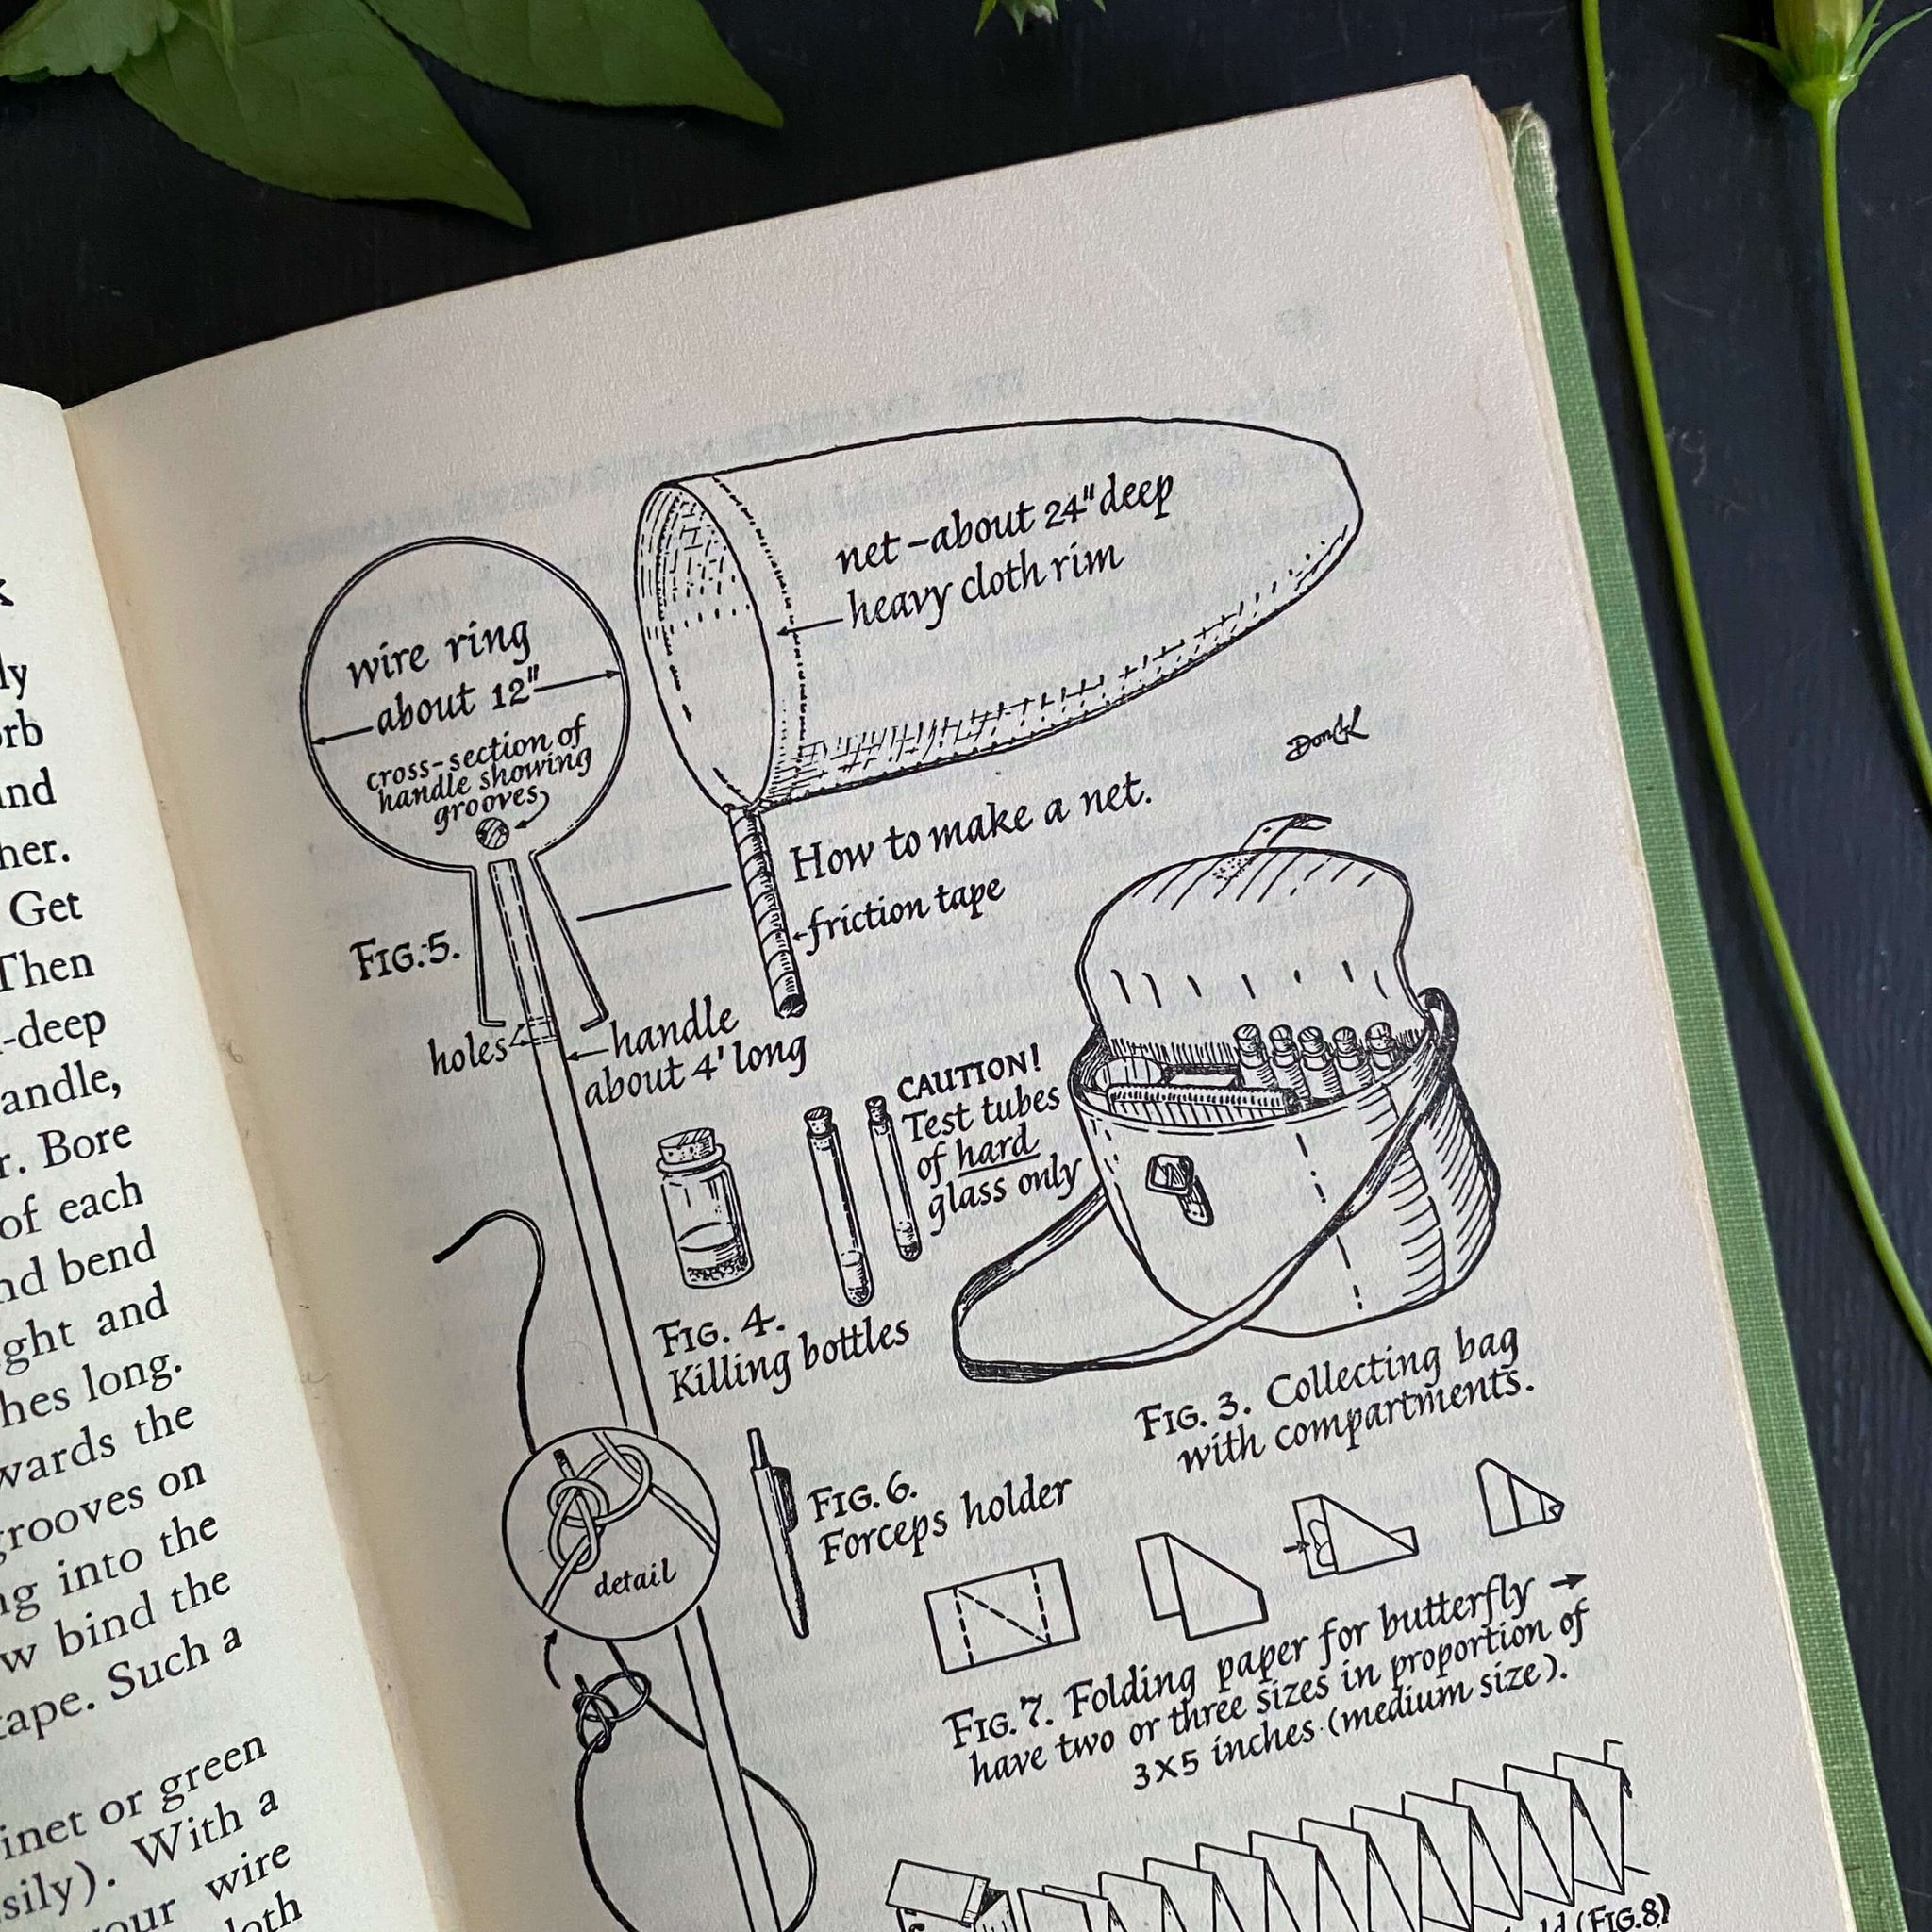 ly
orb
and
her.
Get
Then
-deep
andle,
r. Bore
of each
nd bend
ght and
hes long.
wards the
grooves on
ng into the
w bind the
tape. Such a
inet or green
sily). With a
your wire
loth
net–about 24" deep
heavy cloth rim
wire ring
about 12"
cross-section of
handle showing
grooves
DonGK
How to make a net.
friction tape
FIG. 5.
holes
handle
about 4' long
CAUTION!
Test tubes
of hard
glass only
FIG. 4.
Killing bottles
FIG. 3. Collecting bag
with compartments.
detail
FIG. 6.
Forceps holder
FIG. 7. Folding paper for butterfly →
have two or three sizes in proportion of
3x5 inches (medium size).
(FIG. 8)